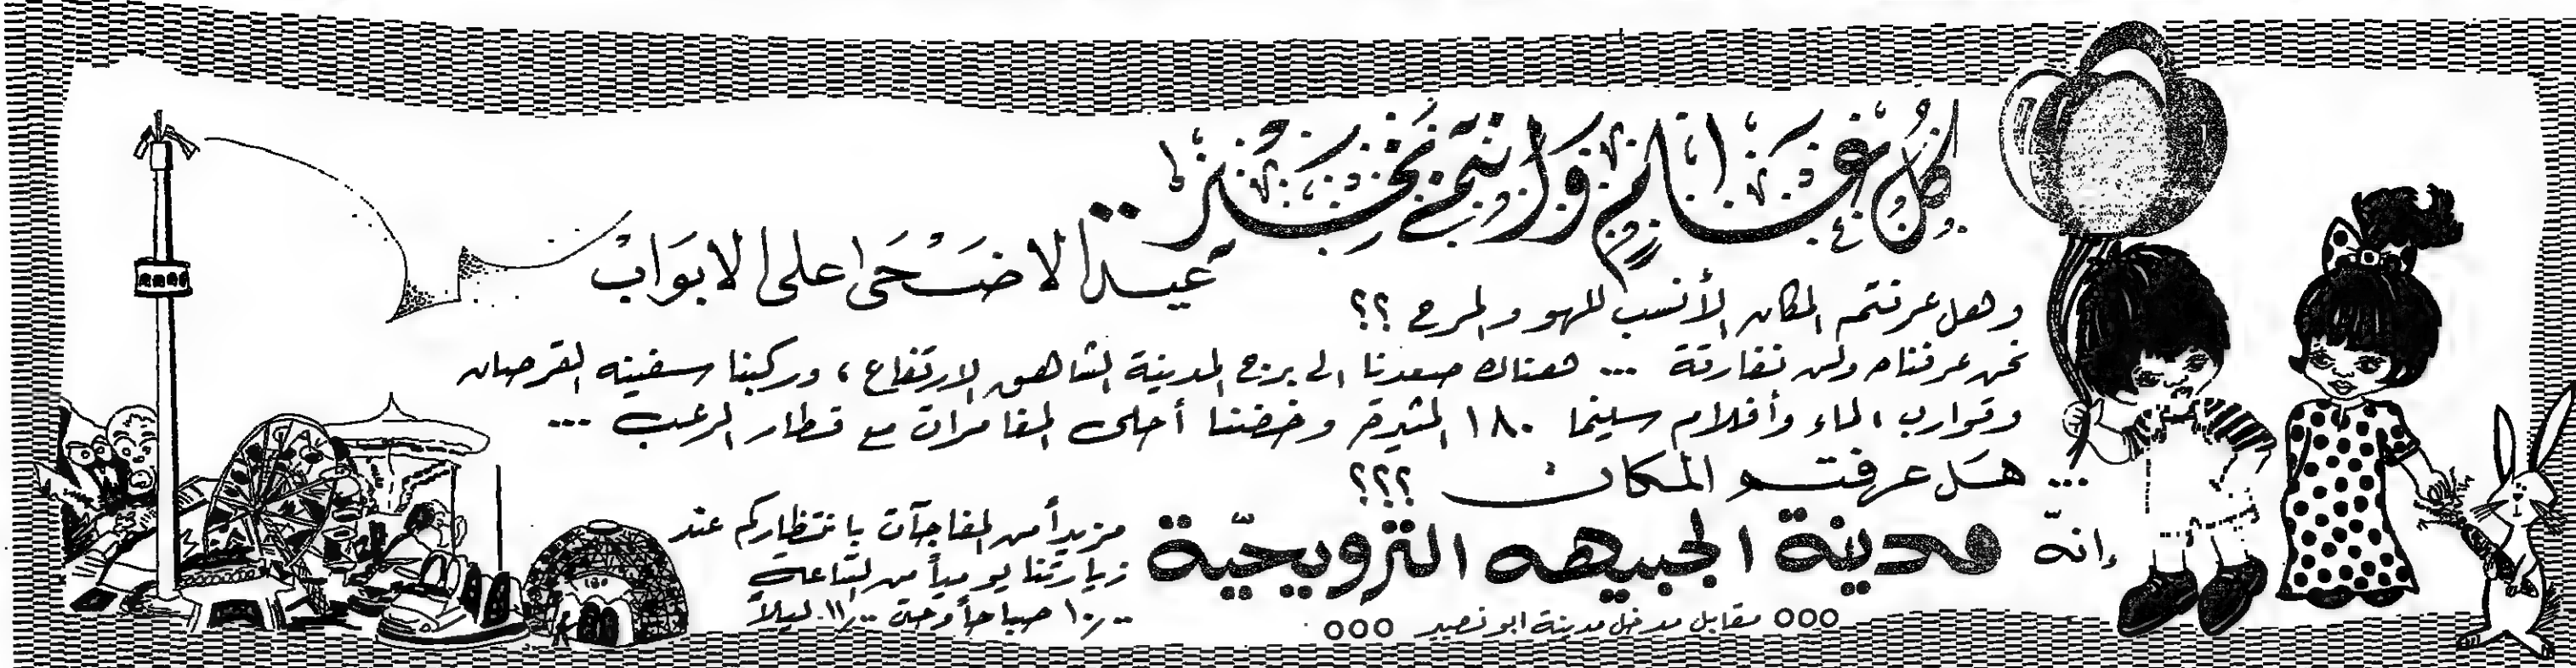 كل عام وانتم بخير
عيد الاضحى على الابواب
وهل عرفتم المكان الأنسب للهو والمرح ؟؟
نحن عرفناه ولن نفارقة ... هناك صعدنا الى برج المدينة الشاهق الارتفاع ، وركبنا سفينه القرصان
وقوارب الماء وأفلام سينما ١٨٠ المثيرة وخضنا أحلى المغامرات مع قطار الرعب ...
... هل عرفتو المكان ؟؟؟
إنه مدينة الجبيهه الترويحية
ooo مقابل مدخل مدينة ابو نصير ooo
مزيداً من المفاجآت بانتظاركم عند
زيارتنا يومياً من الساعه
١٠٫٠٠ صباحاً وحتى ١١٫٠٠ ليلاً